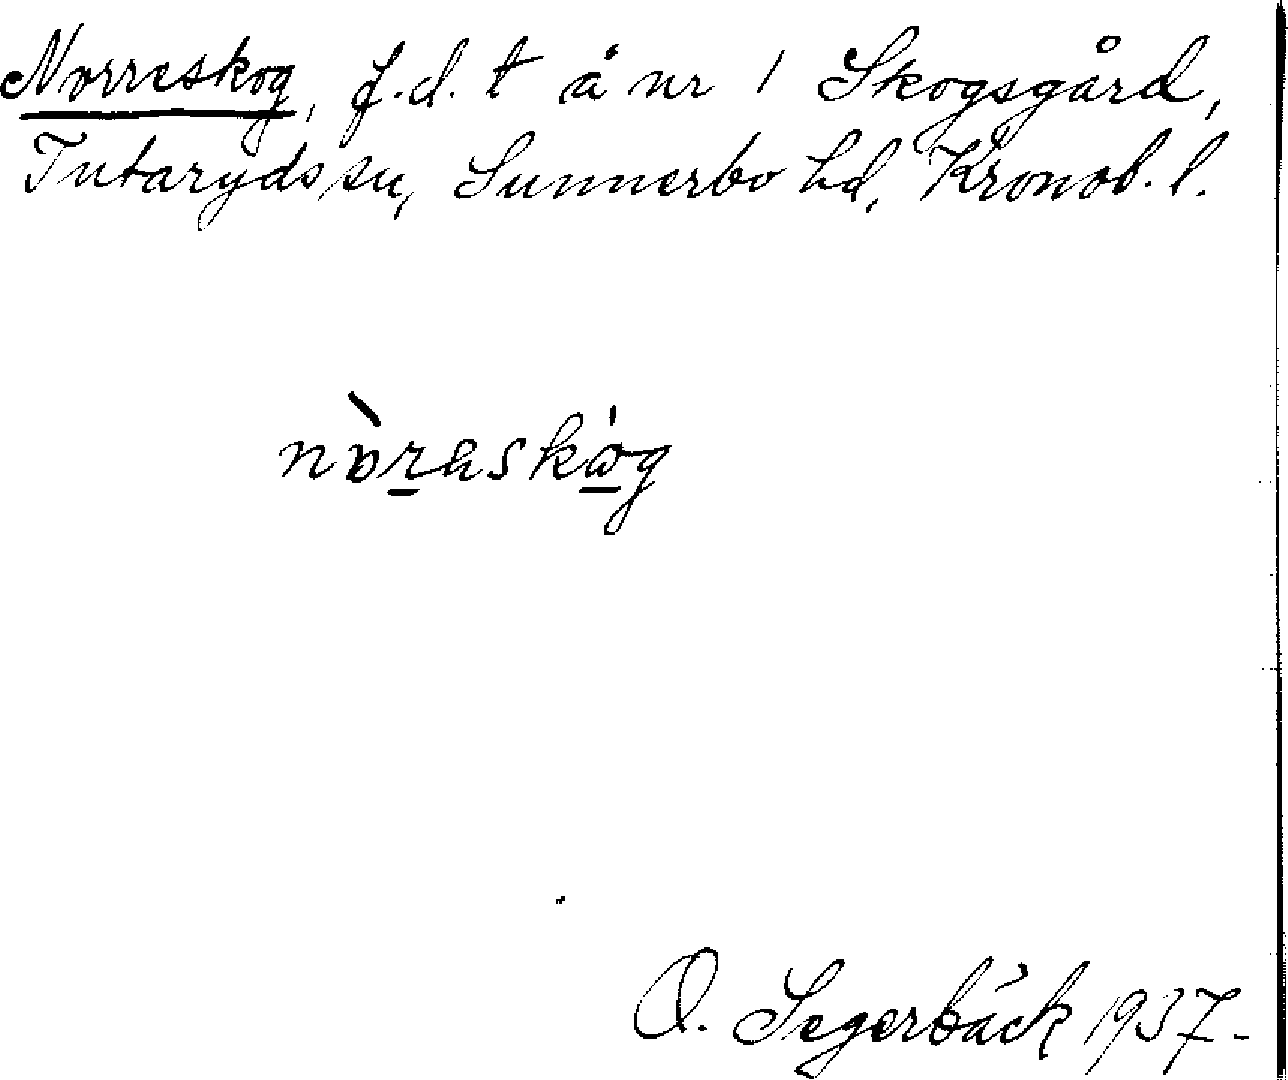 Norreskog, f.d. t å nr 1 Skogsgård,
Tutaryds sn, Sunnerbo hd, Kronob. l.
nòraskóg
O. Segerbäck 1937.